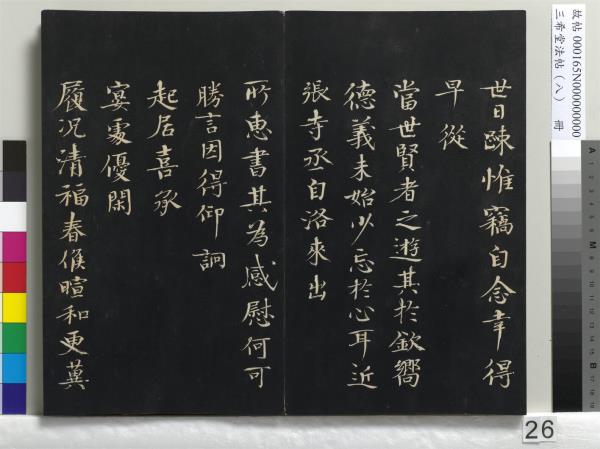 世日疎惟竊自念幸得
早從
當世賢者之遊其於欽嚮
德義未始少忘於心耳近
張寺丞自洛來出
所惠書其為感慰何可
勝言因得仰詗
起居喜承
宴處優閑
履况清福春候暄和更冀
故帖 000165N000000000
三希堂法帖（八） 冊
26